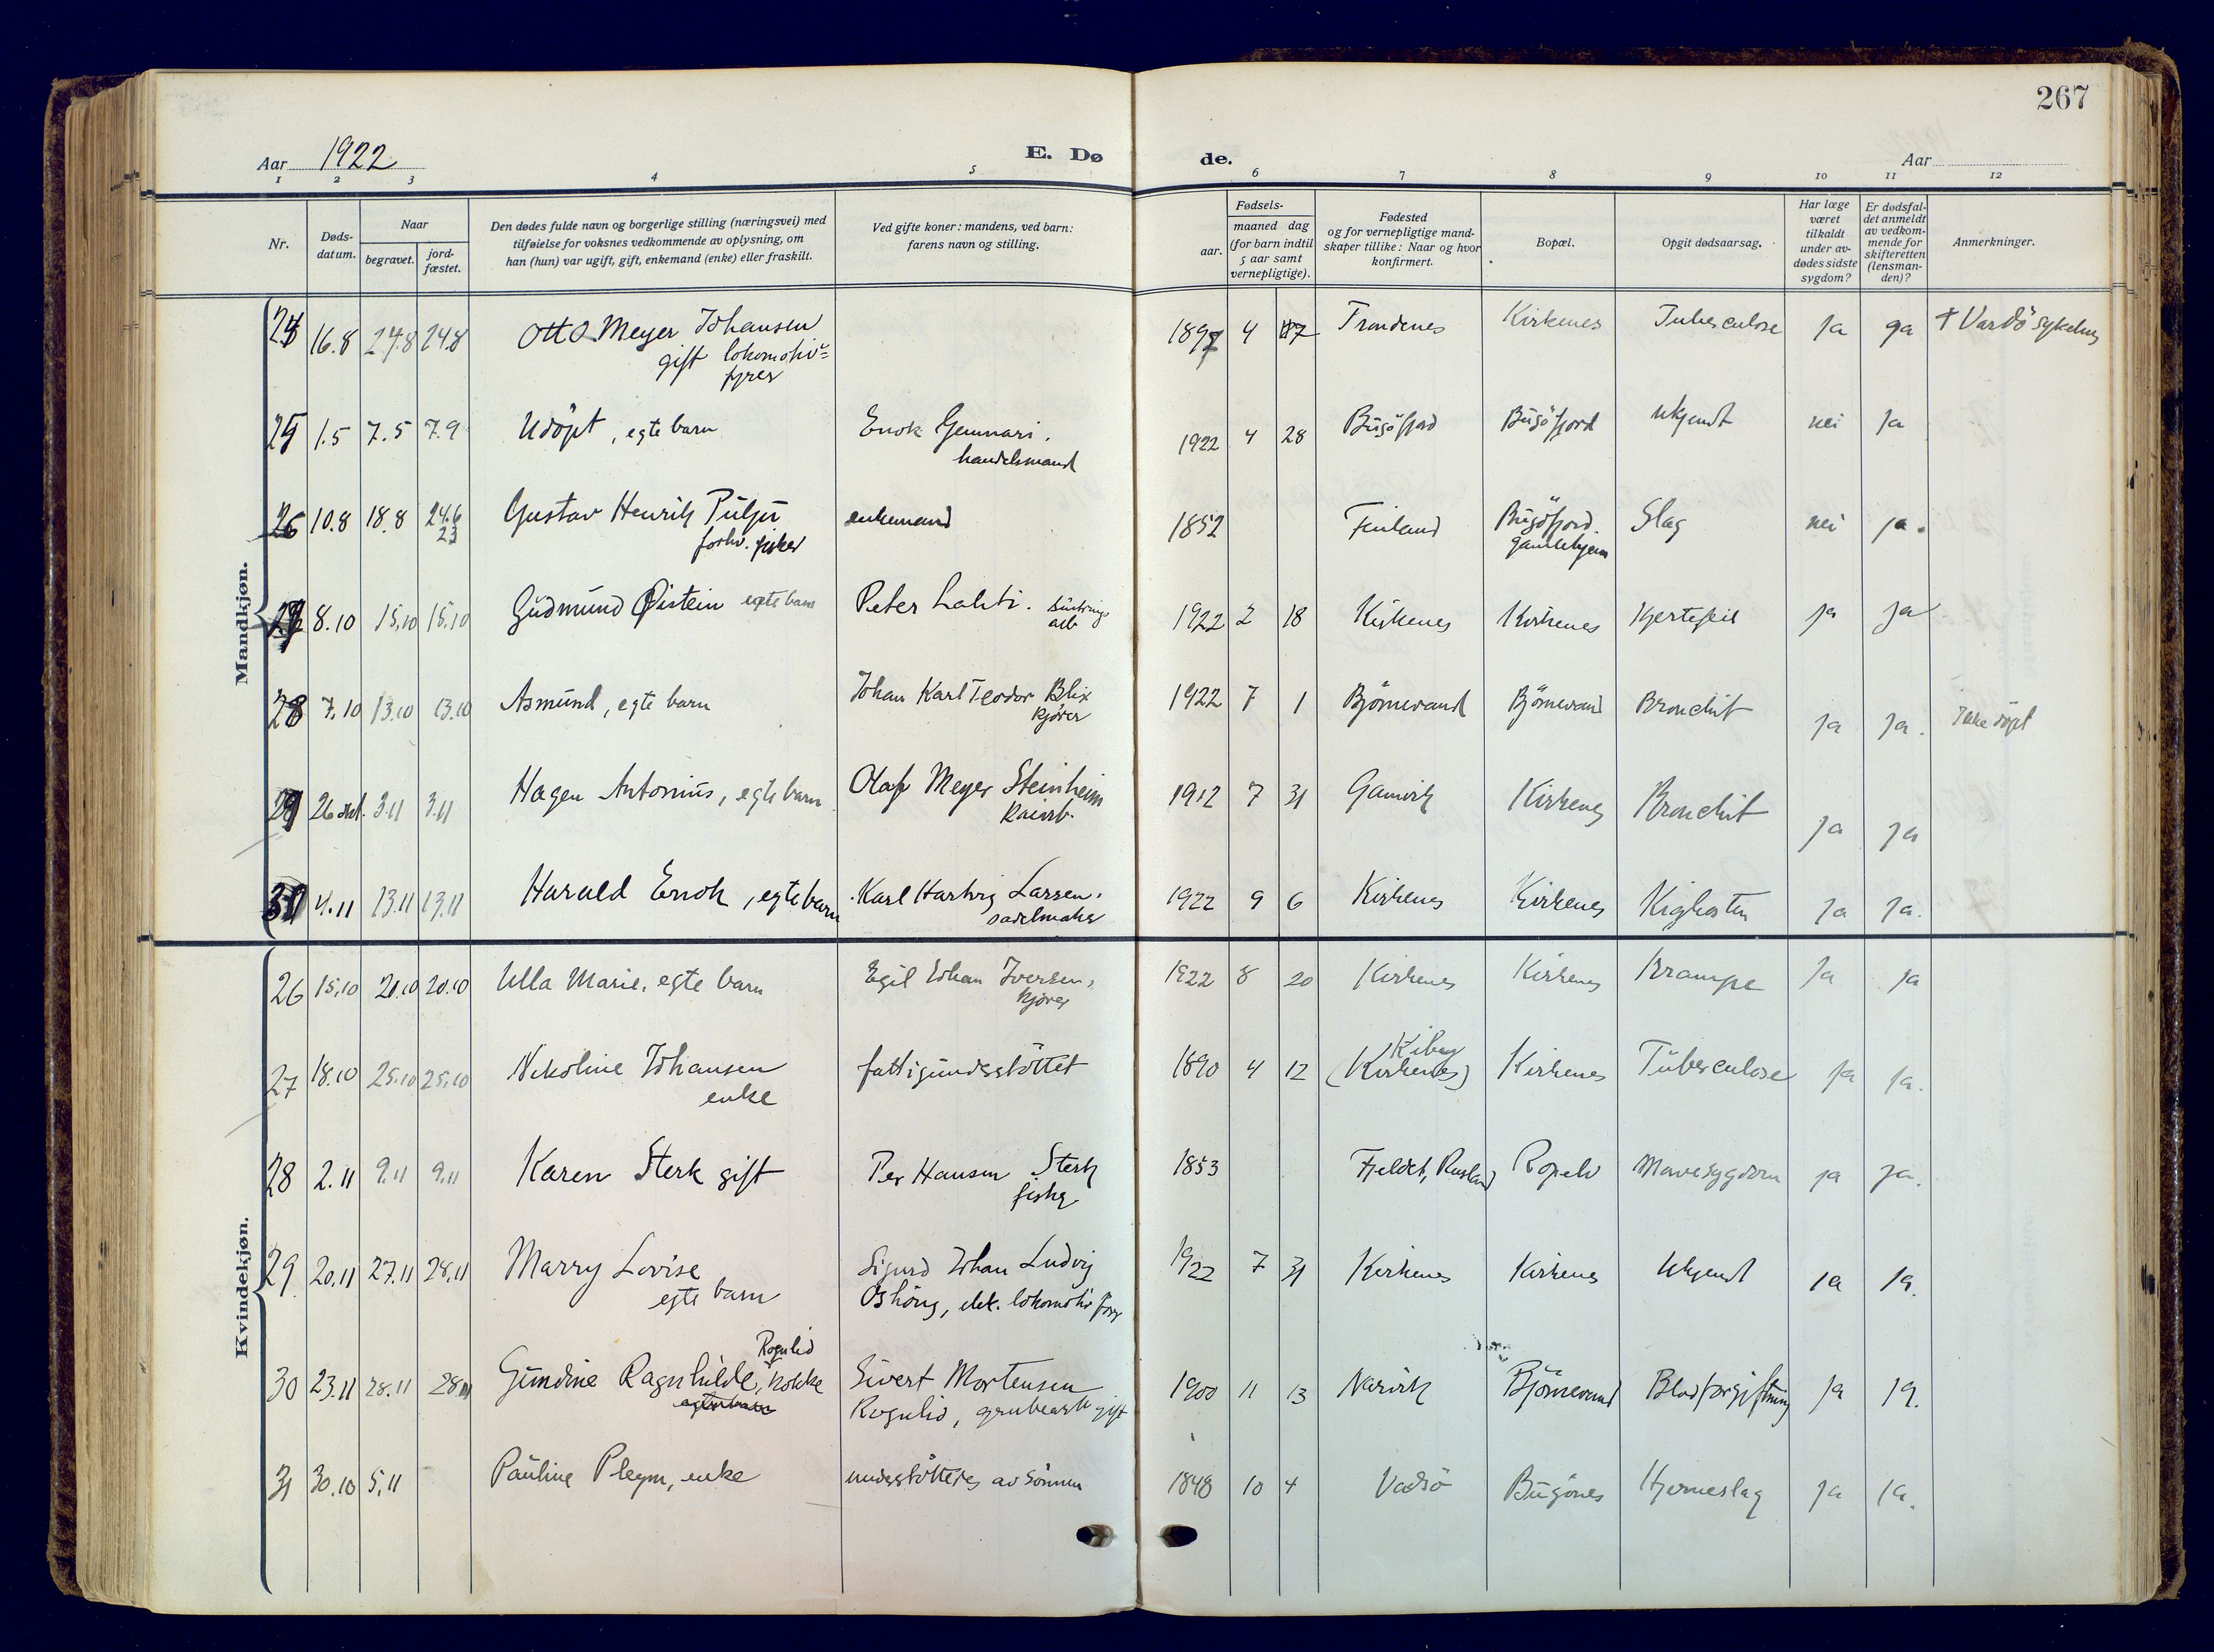 267
Aar 1922
E. Dø de.
Aar
1 2 3 4 5 6 7 8 9 10 11 12
Nr.
Døds-
datum.
Naar
begravet.
jord-
fæstet.
Den dødes fulde navn og borgerlige stilling (næringsvei) med
tilføielse for voksnes vedkommende av oplysning, om
han (hun) var ugift, gift, enkemand (enke) eller fraskilt.
Ved gifte koner: mandens, ved barn:
farens navn og stilling.
Fødsels-
aar.
maaned dag
(for barn indtil
5 aar samt
vernepligtige).
Fødested
og for vernepligtige mand-
skaper tillike: Naar og hvor
konfirmert.
Bopæl.
Opgit dødsaarsag.
Har læge
været
tilkaldt
under av-
dødes sidste
sygdom?
Er dødsfal-
det anmeldt
av vedkom-
mende for
skifteretten
(lensman-
den)?
Anmerkninger.
Mandkjøn.
24 16.8 24.8 24.8 Otto Meyer Johansen 1897 4 17 Trondenes Kirkenes Tuberculose Ja ja † Vardö sykehus
gift lokomotiv=
fyrer
25 1.5 7.5 7.9 Udöpt, egte barn Enok Gennari. 1922 4 28 Bugöfjord Bugöfjord ukjendt nei ja
handelsmand
26 10.8 18.8 24.6 Gustav Henrik Pulju enkemand 1852 Finland Bugöfjord. Slag nei ja.
23 forhv. fisker gamlehjem
27 8.10 15.10 15.10 Gudmund Øistein egte barn Peter Lahti. 1922 2 18 Kirkenes Kirkenes Hjertefeil ja ja
arb
28 7.10 13.10 13.10 Asmund, egte barn Johan Karl Teodor Blix 1922 7 1 Björnevand Björnevand Bronchit ja ja. Ikke döpt
kjörer
29 26 okt. 3.11 3.11 Hagen Antonius, egte barn Olaf Meyer Steinheim 1912 7 31 Gamvik Kirkenes Bronchit ja ja
kaiarb.
4.11 13.11 13.11 Harald Enok, egte barn Karl Hartvig Larsen. 1922 9 6 Kirkenes Kirkenes Kighosten ja ja.
sadelmaker
Kvindekjøn.
26 15.10 20.10 20.10 Ulla Marie, egte barn Egil Johan Iversen, 1922 8 20 Kirkenes Kirkenes Krampe ja ja
kjörer
Kiberg
27 18.10 25.10 25.10 Nikoline Johansen fattigunderstöttet 1890 4 12 (Kirkenes) Kirkenes Tuberculose ja ja.
enke
28 2.11 9.11 9.11 Karen Sterk gift Per Hansen Sterk 1853 Fjeldet, Rusland Ropelv Mavesygdom ja ja.
fisker
29 20.11 27.11 28.11 Marry Lovise Sigurd Johan Ludvig 1922 7 31 Kirkenes Kirkenes Ukjendt ja ja.
egte barn Oshöug, elek. lokomotivförer
Rognlid
30 23.11 28.11 28.11 Gundine Ragnhilde, kokke Sivert Mortensen 1900 11 13 Narvik Björnevand Blodforgiftning ja ja.
egte barn Rognlid, grubearb gift
31 30.10 5.11 Pauline Pleym, enke understöttedes av sönnen 1848 10 4 Vadsö Bugönes Hjerneslag ja ja.